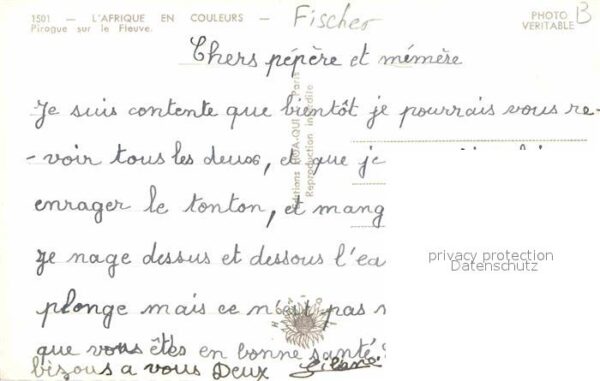 1501 — L'AFRIQUE EN COULEURS —
Pirogue sur le Fleuve.
Fischer
PHOTO
VERITABLE
B
Chers pépère et mémère
Je suis contente que bientôt je pourrais vous re-
-voir tous les deux, et que je
enrager le tonton, et mang
Je nage dessus et dessous l'ea
plonge mais ce n'est pas
que vous êtes en bonne santé
bizous a vous Deux
Reproduction interdite
privacy protection
Datenschutz